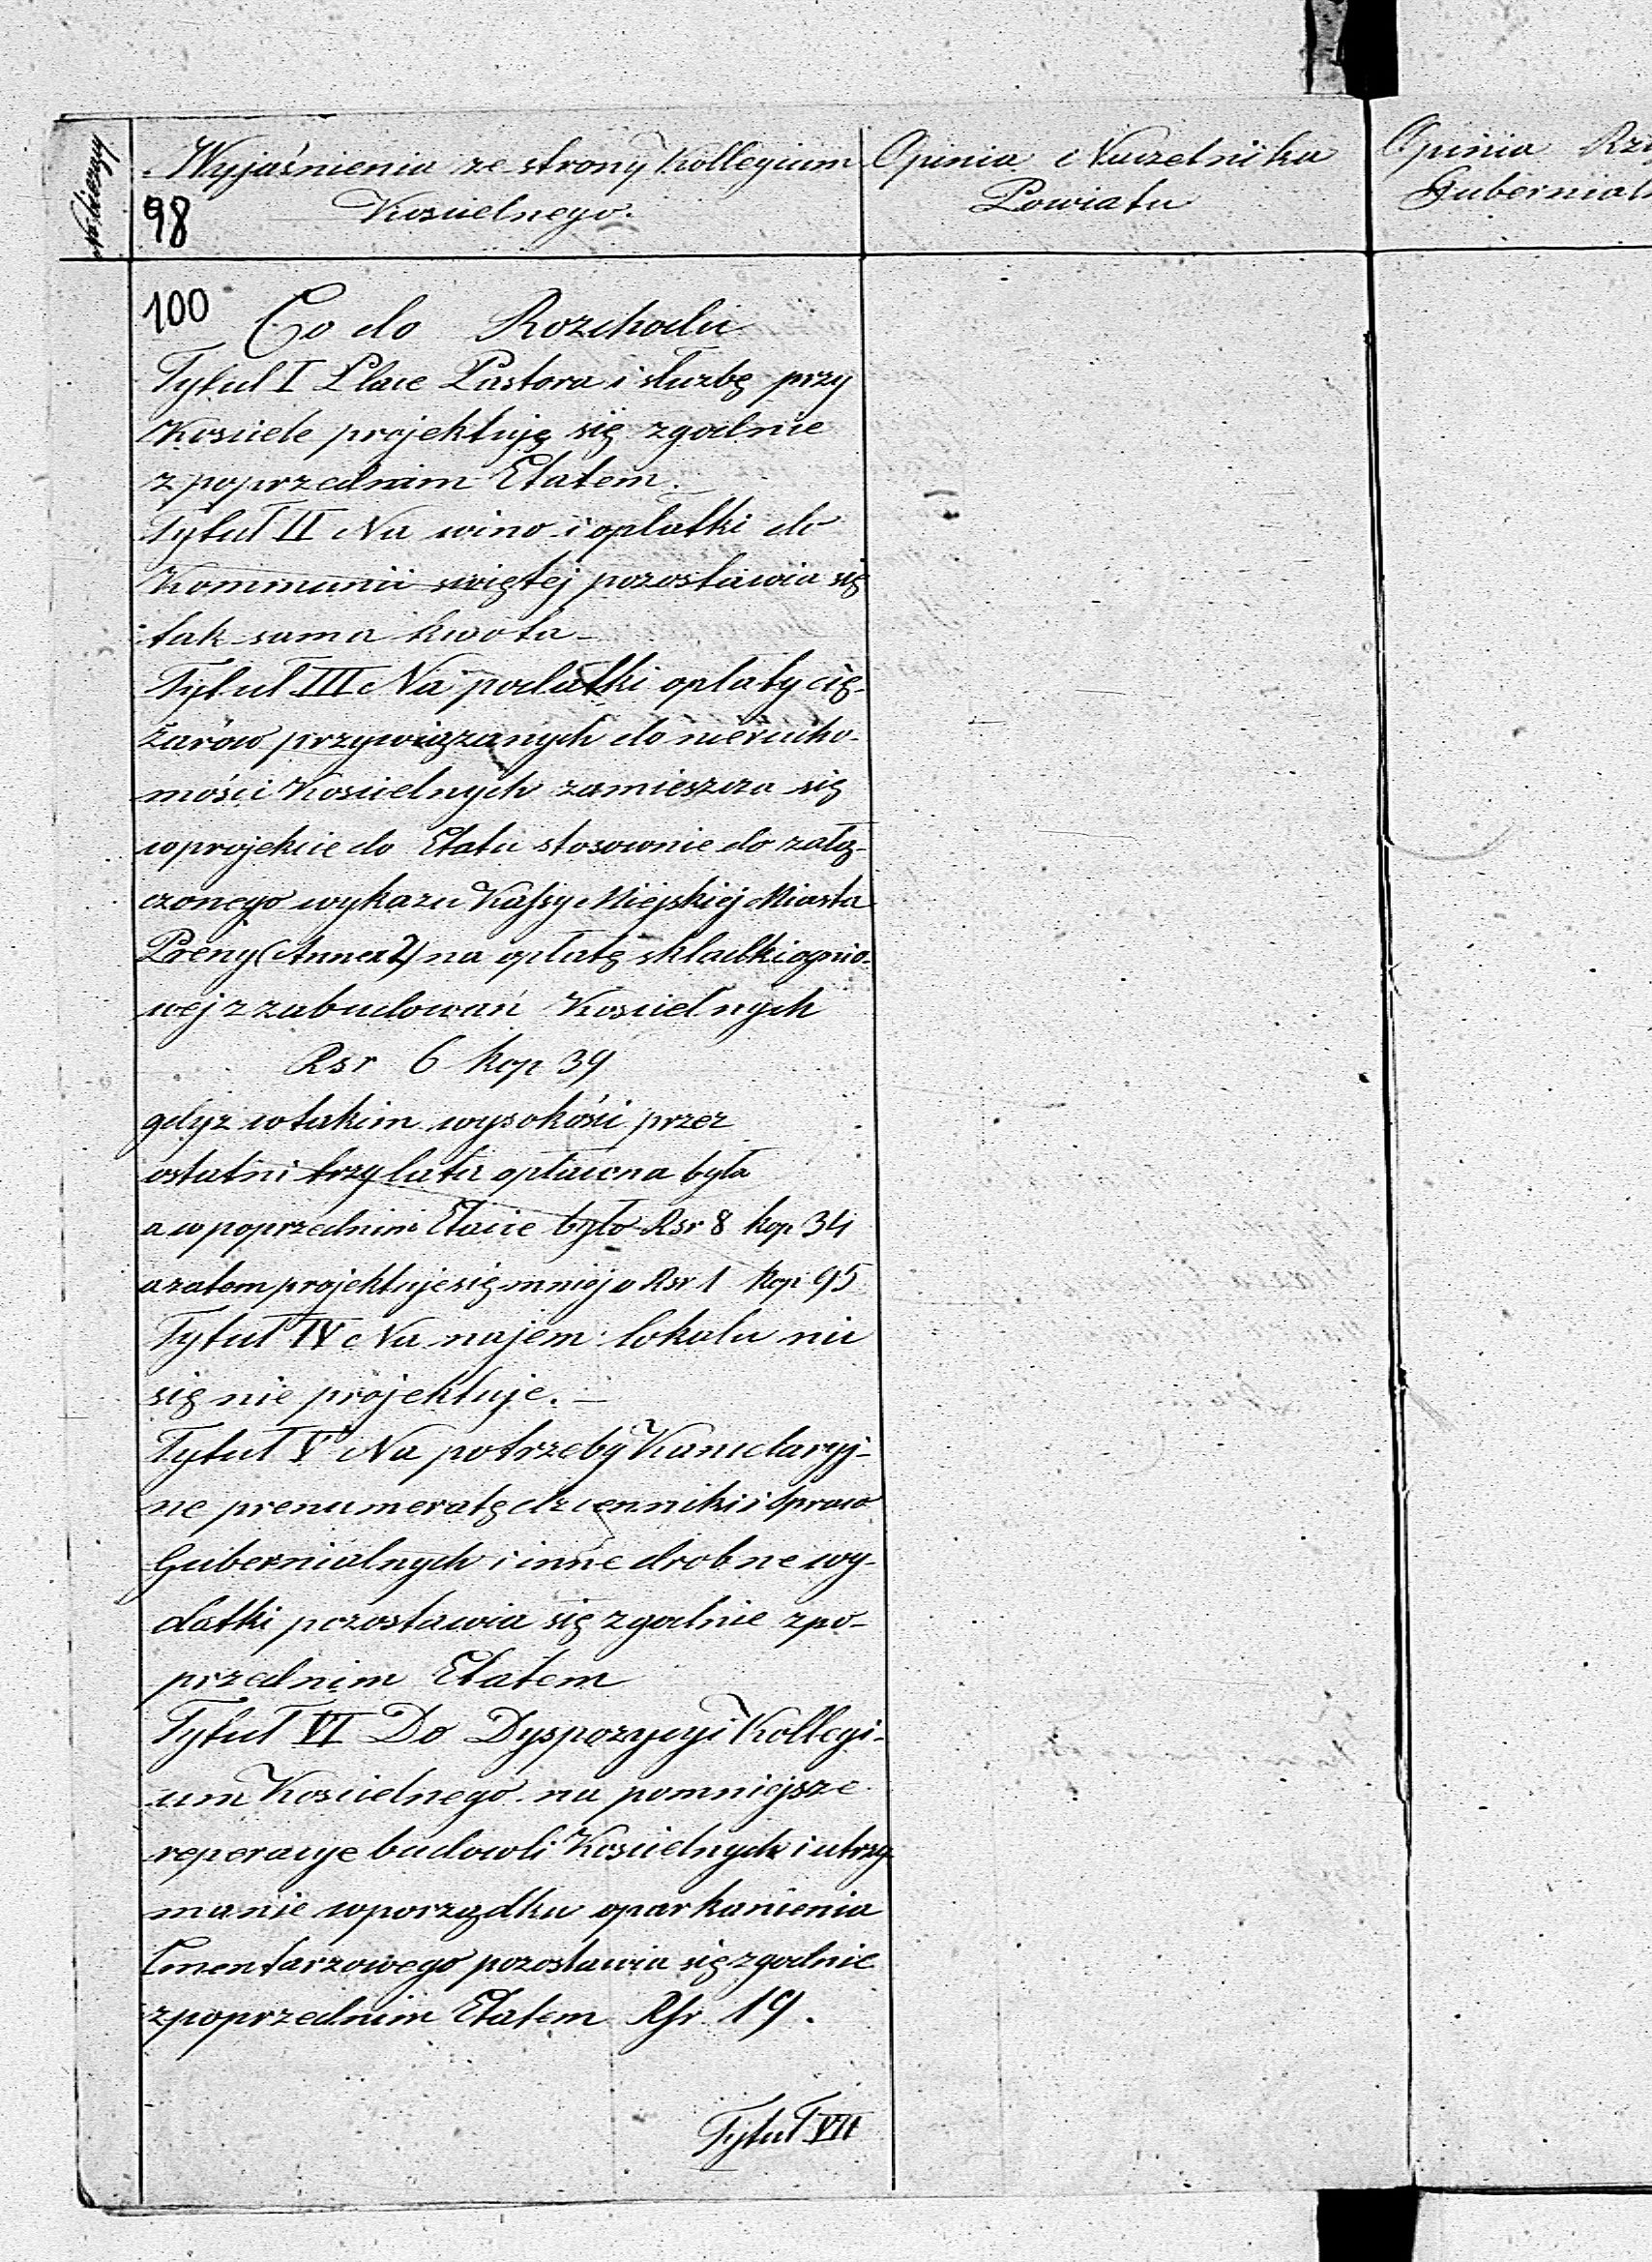 No bieżący
Wyjaśnienia ze strony Kollegium
Kościelnego.
Opinia Naczelnika
Powiatu
Opinia Rz
Gubernial
98
100
Co do Rozchodu
Tytuł I Płace Pastora i służbę przy
Kościele projektuję się zgodnie
z poprzednim Etatem.
Tytuł II Na wino i opłatki do
Kommunii świętej pozostawia się
tak sama kwota –
Tytuł III Na podatki opłaty cię-
żarów przywiązanych do nierucho-
mości Kościelnych zamieszcza się
w projekcie do Etatu stosownie do załą-
czonego wykazu Kassy Miejskiej Miasta
Preny (Annex 2) na opłatę składki ognio-
wej z zabudowań Kościelnych
Rsr 6 kop 39
gdyż w takim wysokości przez
ostatni trzy lata opłacna była
a w poprzednim Etacie było Rsr 8 kop 34
a zatem projektuje się mniej o Rsr 1 kop 95
Tytuł IV Na najem lokalu nic
się nie projektuje. –
Tytuł V Na potrzeby Kancelaryj-
ne prenumeratę dzienniki i Spraw
Gubernialnych i inne drobne wy-
datki pozostawia się zgodnie z po-
przednim Etatem
Tytuł VI Do Dyspozycyi Kollegi-
um Kościelnego na pomniejsze
reperacye budowli Kościelnych i utrzy
manie w porządku oparkanienia
Cmentarzowego pozostawia się zgodnie
z poprzednim Etatem Rsr. 19.
Tytuł VII